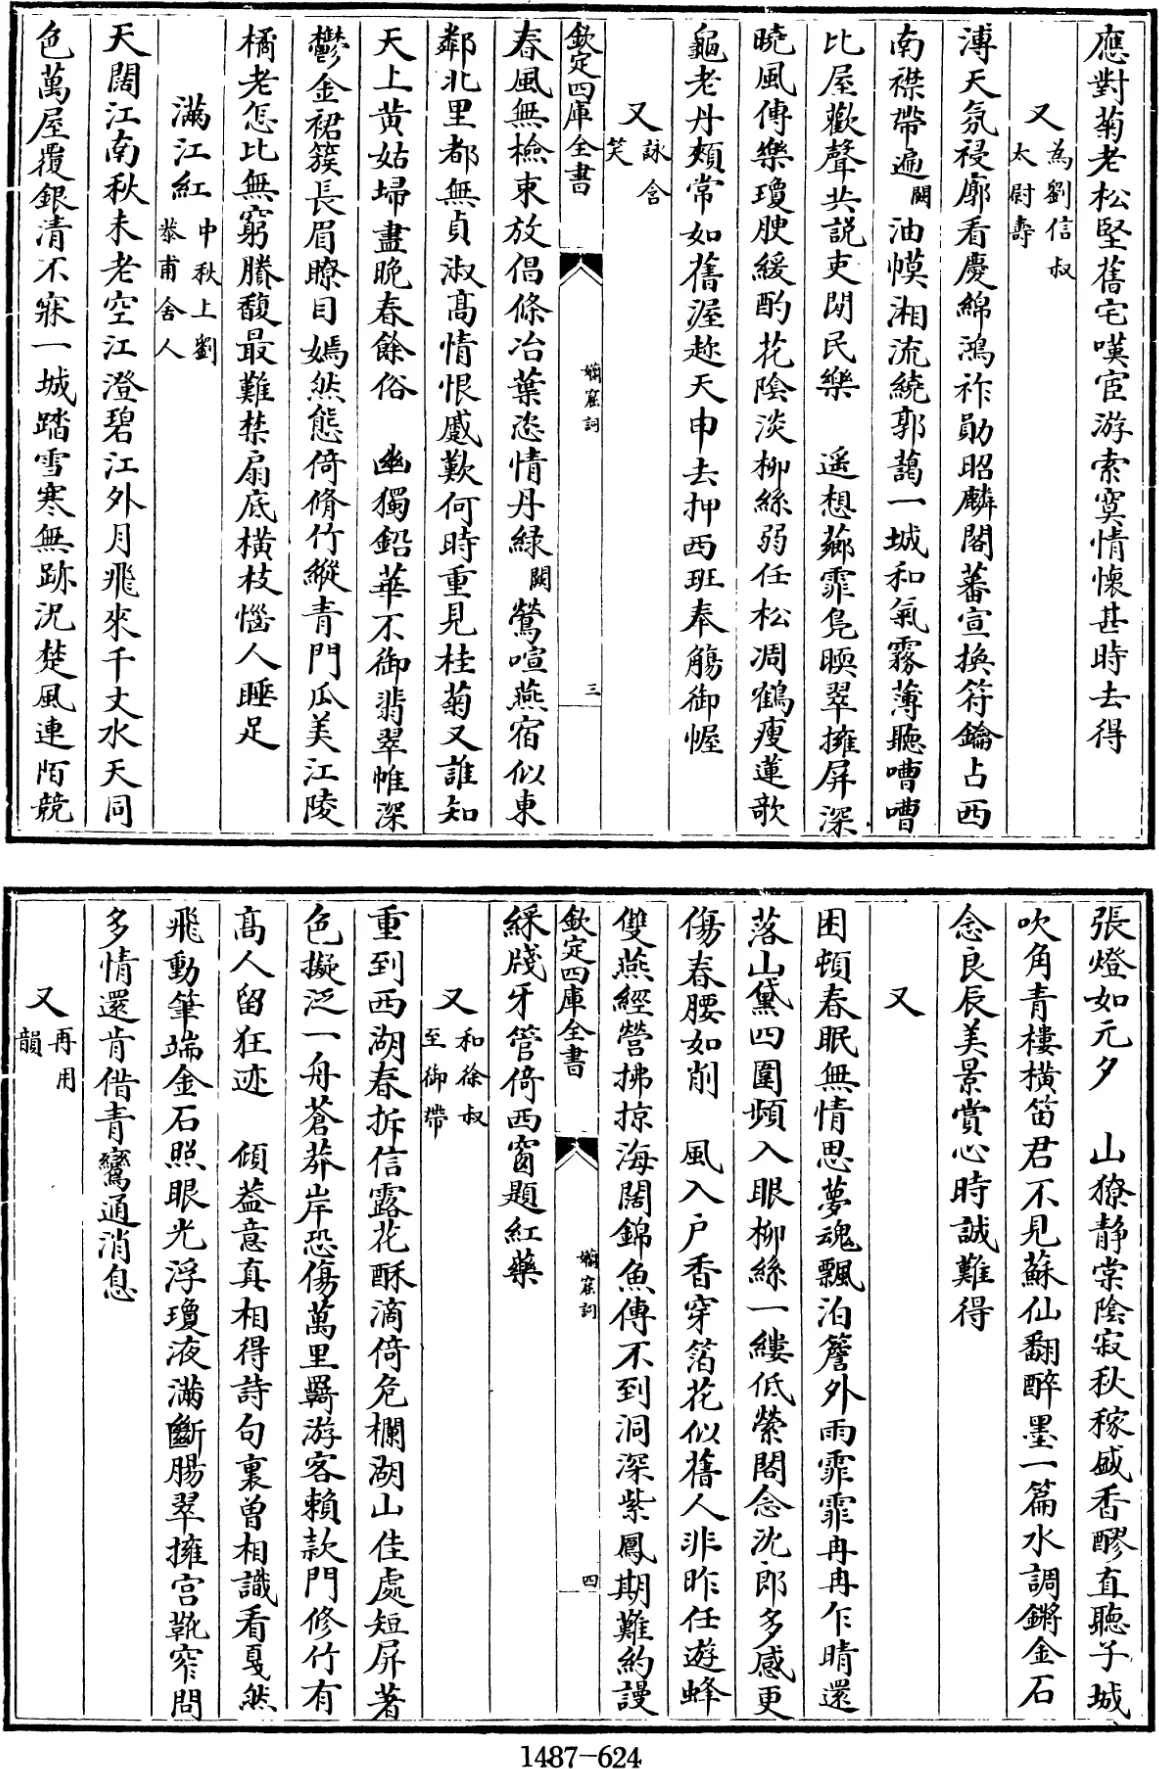 應對菊老松堅舊宅嘆宦游索寞情懷甚時去得
又為劉信叔太尉壽
溥天氛祲廓看慶綿鴻祚勛昭麟閣蕃宣換符鑰占西
南襟帶遍闕油幙湘流繞郭藹一城和氣霧薄聽嘈嘈
比屋歡聲共説吏閒民樂　遥想薌霏凫暝翠擁屏深
曉風傳樂瓊腴緩酌花陰淡柳絲弱任松凋鶴瘦蓮欹
龜老丹頰常如舊渥趂天申去押西班奉觴御幄
又詠含笑
欽定四庫全書
嬾窟詞
三
春風無檢束放倡條冶葉恣情丹緑闕鶯喧燕宿似東
鄰北里都無貞淑高情恨蹙歎何時重見桂菊又誰知
天上黄姑埽盡晩春餘俗　幽獨鉛華不御翡翠帷深
鬱金裙簇長眉瞭目嫣然態倚脩竹縱青門瓜美江陵
橘老怎比無窮賸馥最難禁扇底横枝惱人睡足
滿江紅中秋上劉恭甫舍人
天闊江南秋未老空江澄碧江外月飛來千丈水天同
色萬屋覆銀清不寐一城踏雪寒無跡况楚風連陌競
張燈如元夕　山獠静棠陰寂秋稼盛香醪直聽子城
吹角青樓横笛君不見蘇仙翻醉墨一篇水調鏘金石
念良辰美景賞心時誠難得
又
困頓春眠無情思夢魂飄泊簷外雨霏霏冉冉乍晴還
落山黛四圍頻入眼柳絲一縷低縈閣念沈郎多感更
傷春腰如削　風入户香穿箔花似舊人非昨任遊蜂
雙燕經營拂掠海闊錦魚傳不到洞深紫鳳期難約謾
欽定四庫全書
嬾窟詞
四
綵牋牙管倚西窗題紅藥
又和徐叔至御帶
重到西湖春拆信露花酥滴倚危欄湖山佳處短屏著
色擬泛一舟蒼莽岸恐傷萬里羇游客賴款門修竹有
高人留狂迹　傾葢意真相得詩句裏曾相識看戛然
飛動筆端金石照眼光浮瓊液滿斷腸翠擁宫靴窄問
多情還肯借青鸞通消息
又再用韻
1487-624